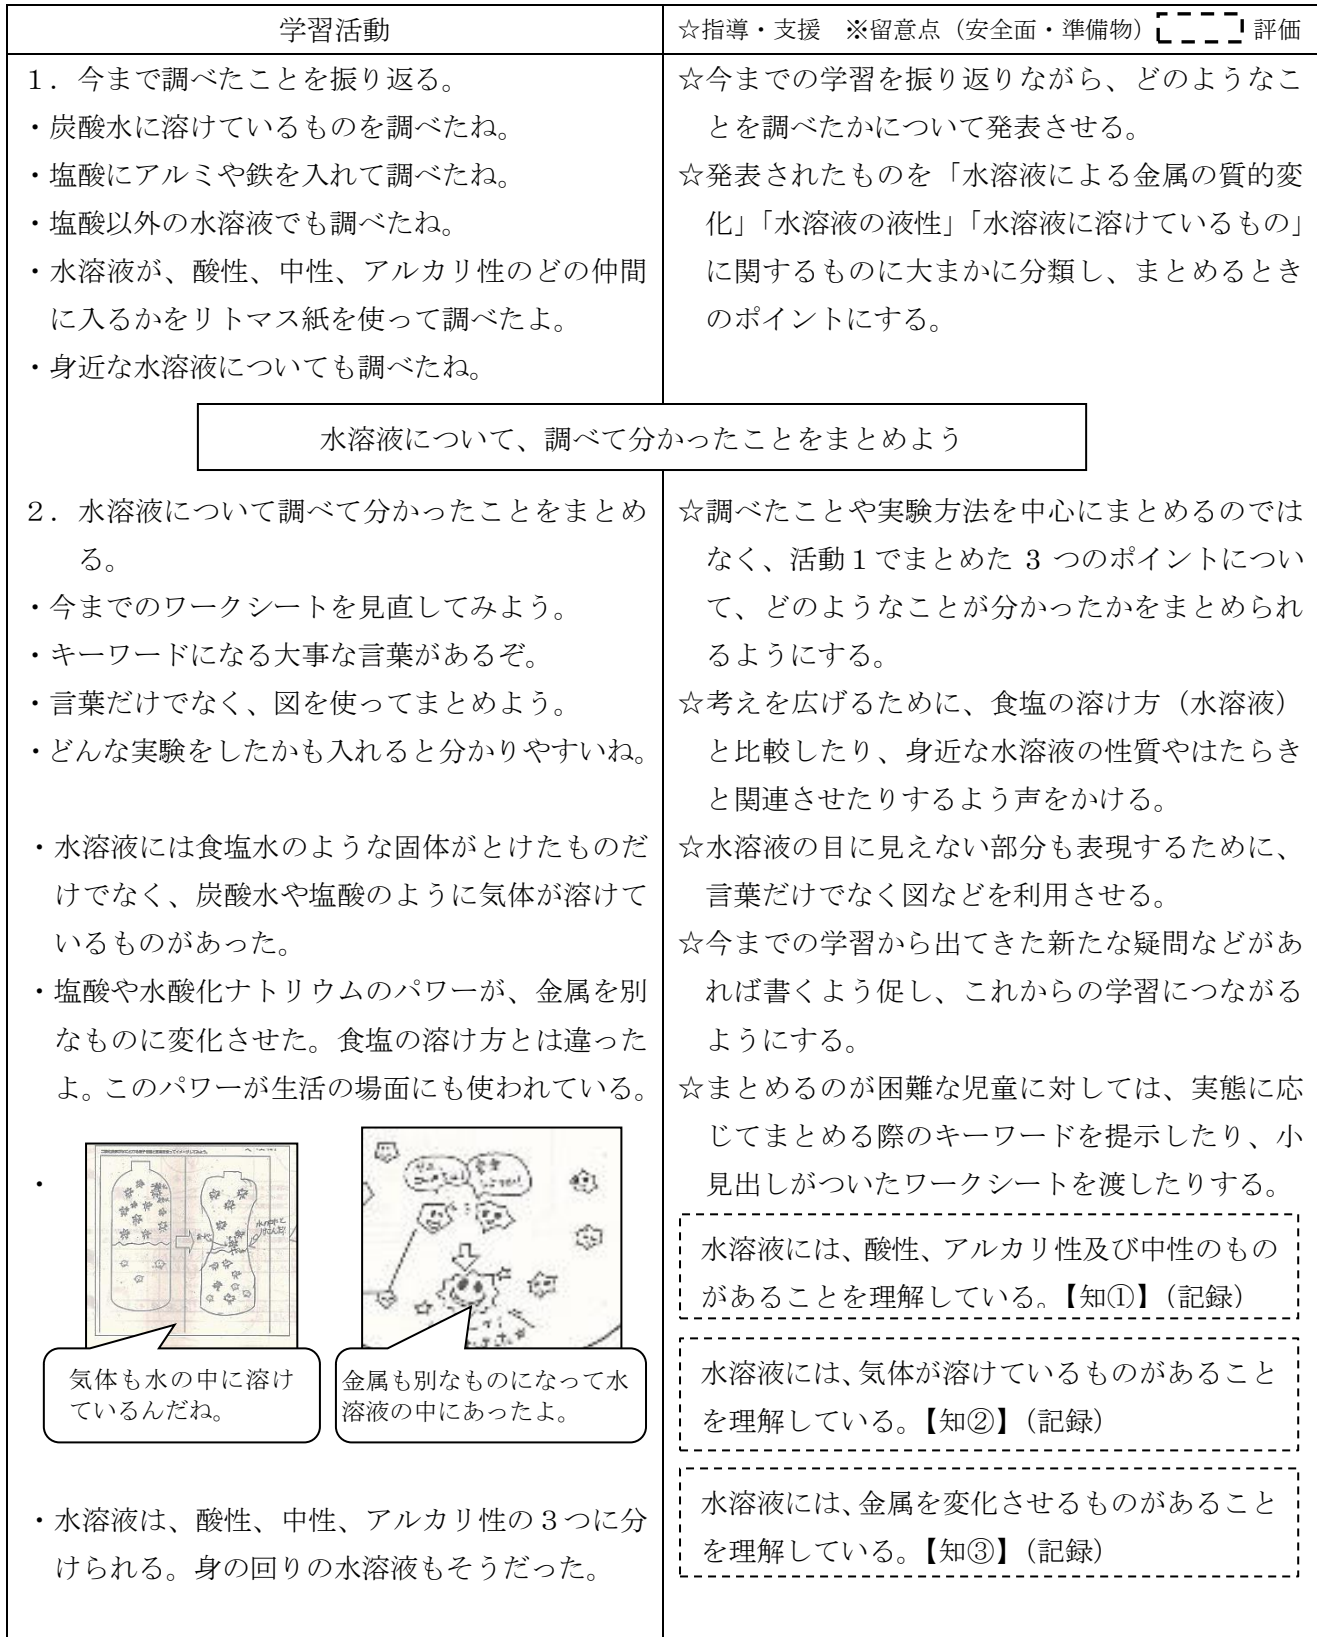 学習活動
☆指導・支援　※留意点（安全面・準備物）　評価
１．今まで調べたことを振り返る。
・炭酸水に溶けているものを調べたね。
・塩酸にアルミや鉄を入れて調べたね。
・塩酸以外の水溶液でも調べたね。
・水溶液が、酸性、中性、アルカリ性のどの仲間
に入るかをリトマス紙を使って調べたよ。
・身近な水溶液についても調べたね。
☆今までの学習を振り返りながら、どのようなこ
とを調べたかについて発表させる。
☆発表されたものを「水溶液による金属の質的変
化」「水溶液の液性」「水溶液に溶けているもの」
に関するものに大まかに分類し、まとめるとき
のポイントにする。
水溶液について、調べて分かったことをまとめよう
２．水溶液について調べて分かったことをまとめ
る。
・今までのワークシートを見直してみよう。
・キーワードになる大事な言葉があるぞ。
・言葉だけでなく、図を使ってまとめよう。
・どんな実験をしたかも入れると分かりやすいね。
・水溶液には食塩水のような固体がとけたものだ
けでなく、炭酸水や塩酸のように気体が溶けて
いるものがあった。
・塩酸や水酸化ナトリウムのパワーが、金属を別
なものに変化させた。食塩の溶け方とは違った
よ。このパワーが生活の場面にも使われている。
・
気体も水の中に溶け
ているんだね。
金属も別なものになって水
溶液の中にあったよ。
・水溶液は、酸性、中性、アルカリ性の３つに分
けられる。身の回りの水溶液もそうだった。
☆調べたことや実験方法を中心にまとめるのでは
なく、活動１でまとめた 3 つのポイントについ
て、どのようなことが分かったかをまとめられ
るようにする。
☆考えを広げるために、食塩の溶け方（水溶液）
と比較したり、身近な水溶液の性質やはたらき
と関連させたりするよう声をかける。
☆水溶液の目に見えない部分も表現するために、
言葉だけでなく図などを利用させる。
☆今までの学習から出てきた新たな疑問などがあ
れば書くよう促し、これからの学習につながる
ようにする。
☆まとめるのが困難な児童に対しては、実態に応
じてまとめる際のキーワードを提示したり、小
見出しがついたワークシートを渡したりする。
水溶液には、酸性、アルカリ性及び中性のもの
があることを理解している。【知①】（記録）
水溶液には、気体が溶けているものがあること
を理解している。【知②】（記録）
水溶液には、金属を変化させるものがあること
を理解している。【知③】（記録）